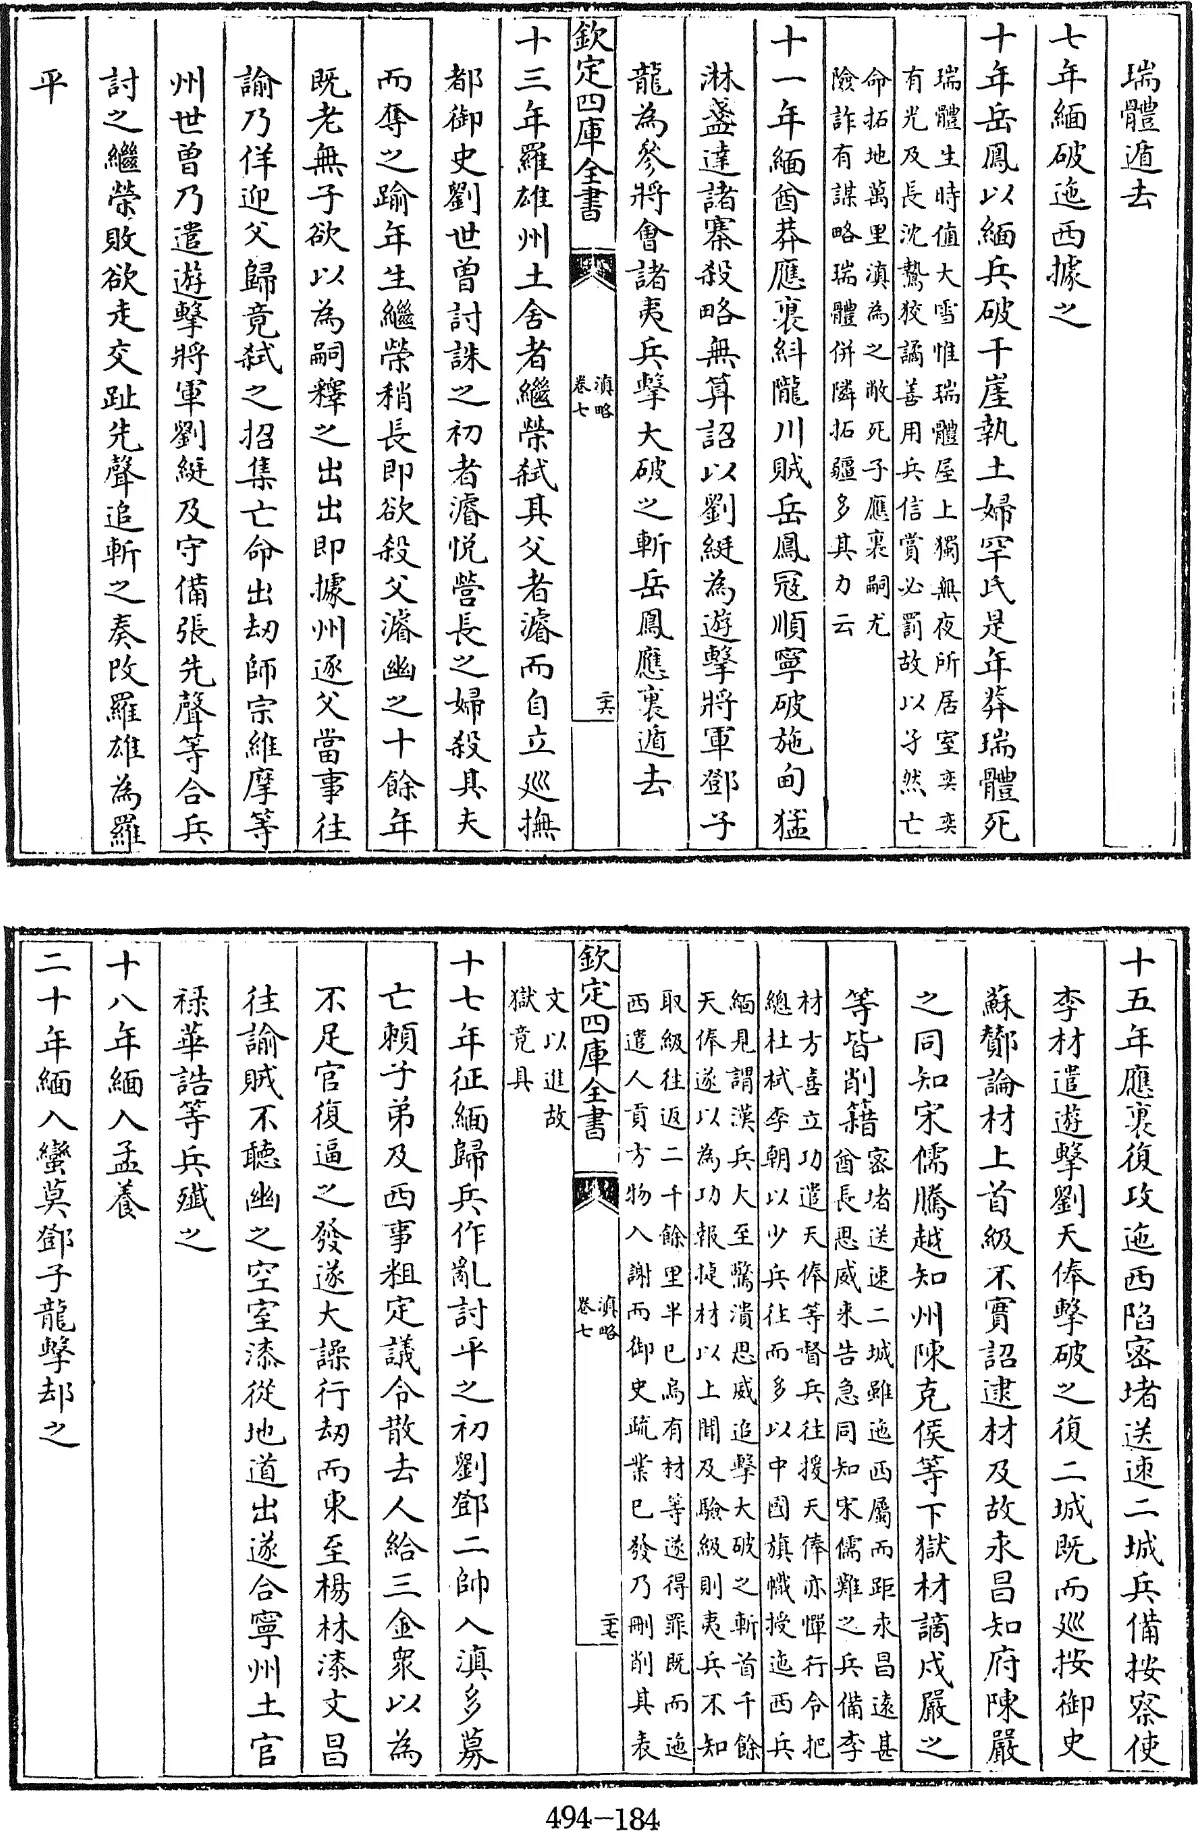 瑞體遁去
七年緬破迤西據之
十年岳鳳以緬兵破干崖執土婦罕氏是年莽瑞體死
瑞體生時值大雪惟瑞體屋上獨無夜所居室奕奕
有光及長沈鷙狡譎善用兵信賞必罰故以孑然亡
命拓地萬里滇為之敝死子應裏嗣尤
險詐有謀略瑞體併隣拓疆多其力云
十一年緬酋莽應裏糾隴川賊岳鳳冦順寧破施甸猛
淋盞達諸寨殺略無算詔以劉綎為遊擊將軍鄧子
龍為參將會諸夷兵擊大破之斬岳鳳應裏遁去
欽定四庫全書
滇略
卷七
二六
十三年羅雄州土舍者繼榮弒其父者濬而自立巡撫
都御史劉世曾討誅之初者濬悅營長之婦殺其夫
而奪之踰年生繼榮稍長即欲殺父濬幽之十餘年
既老無子欲以為嗣釋之出出即據州逐父當事往
諭乃佯迎父歸竟弒之招集亡命出刧師宗維摩等
州世曾乃遣遊擊將軍劉綎及守備張先聲等合兵
討之繼榮敗欲走交趾先聲追斬之奏改羅雄為羅
平
十五年應裏復攻迤西陷密堵送速二城兵備按察使
李材遣遊擊劉天俸擊破之復二城既而巡按御史
蘇酇論材上首級不實詔逮材及故永昌知府陳嚴
之同知宋儒騰越知州陳克侯等下獄材謫戍嚴之
等皆削籍
密堵送速二城雖迤西屬而距永昌遠甚
酋長思威來告急同知宋儒難之兵備李
材方喜立功遣天俸等督兵往援天俸亦憚行令把
總杜栻李朝以少兵往而多以中國旗幟授迤西兵
緬見謂漢兵大至驚潰思威追擊大破之斬首千餘
天俸遂以為功報捷材以上聞及驗級則夷兵不知
取級往返二千餘里半已烏有材等遂得罪既而迤
西遣人貢方物入謝而御史疏業已發乃刪削其表
欽定四庫全書
滇略
卷七
二七
文以進故
獄竟具
十七年征緬歸兵作亂討平之初劉鄧二帥入滇多募
亡賴子弟及西事粗定議令散去人給三金衆以為
不足官復逼之發遂大譟行刧而東至楊林漆文昌
往諭賊不聽幽之空室漆從地道出遂合寧州土官
祿華誥等兵殲之
十八年緬入孟養
二十年緬入蠻莫鄧子龍擊却之
494-184